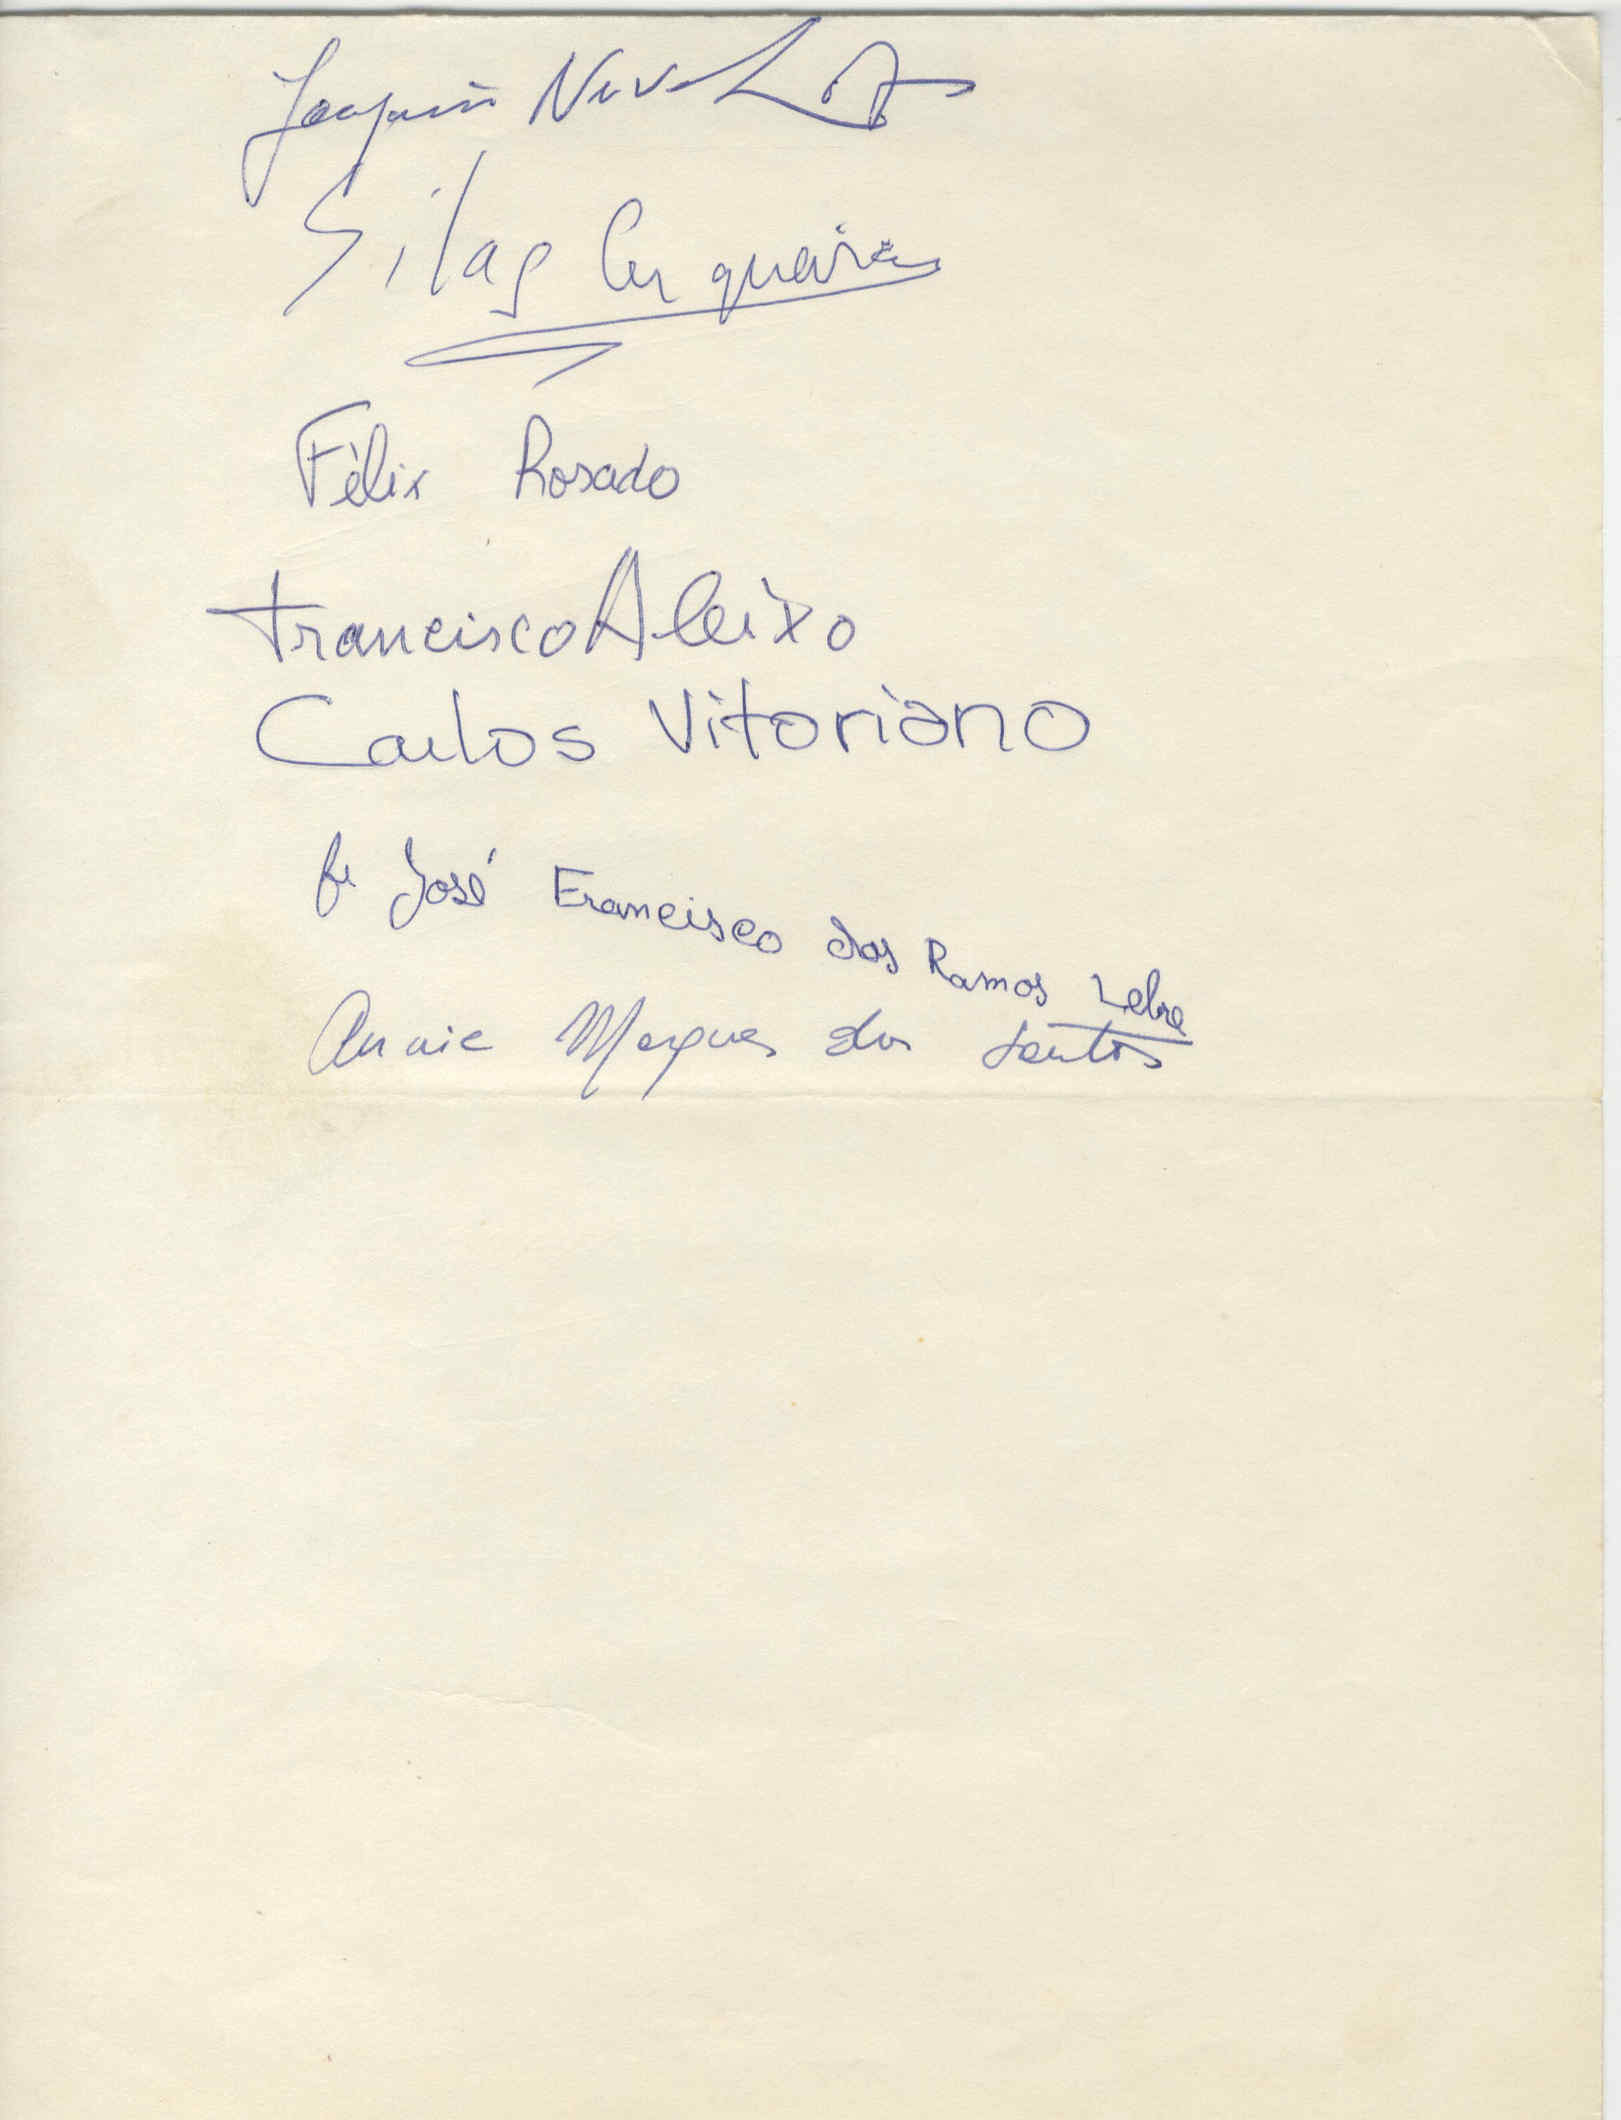 Joaquim
Silas Cerqueira
Félix Rosado
Francisco Aleixo
Carlos Vitoriano
fr José Francisco dos Ramos Lebre
Annie Marques dos Santos